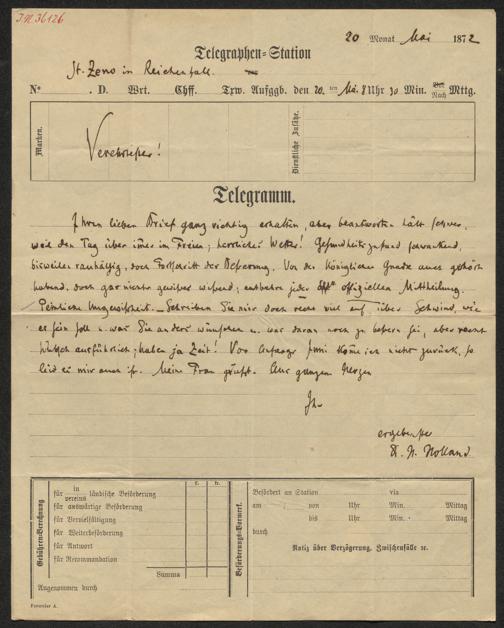 I.N. 36126
20 Monat Mai 1872
Telegraphen=Station
St. Zeno in Reichenhall.
No . D. Wrt. Chff. Txw. Aufggb. den 20. ten Mai. 8 Uhr 30 Min. Vor Nach Mttg.
Marken.
Verehrtester!
Dienstliche Zusätze.
Telegramm.
Ihren lieben Brief ganz richtig erhalten, aber beantworten hält schwer,
weil den Tag über im̅er im Freien; herrliches Wetter! Gesundheitszustand schwankend,
bisweilen rauhhällig, doch Fortschritt der Besserung. Von der Königlichen Gnade etwas gehört
habend, doch gar nichts gewisses wissend; entbehre jeder offiziellen Mittheilung.
Peinliche Ungewißheit. – Schreiben Sie mir doch recht viel auf, über Schwind, wie
es sein soll u. was Sie anders wünschen u. was daran noch zu bessern sei, aber recht
hübsch ausführlich; haben ja Zeit! Vor Anfangs Juni kom̅e ich nicht zurück, so
leid es mir auch ist. Meine Frau grüßt. Aus ganzem Herzen
Ihr
ergebenster
H. Holland.
Gebühren=Berechnung
für in vereins ländische Beförderung
für auswärtige Beförderung
für Vervielfältigung
für Weiterbeförderung
für Antwort
für Recommandation
Summa
Angenommen durch
fl. kr.
Beförderungs=Vormerk.
Befördert an Station via
am von Uhr Min. Mittag
bis Uhr Min. Mittag
durch
Notiz über Verzögerung, Zwischenfälle ꝛc.
Formular A.